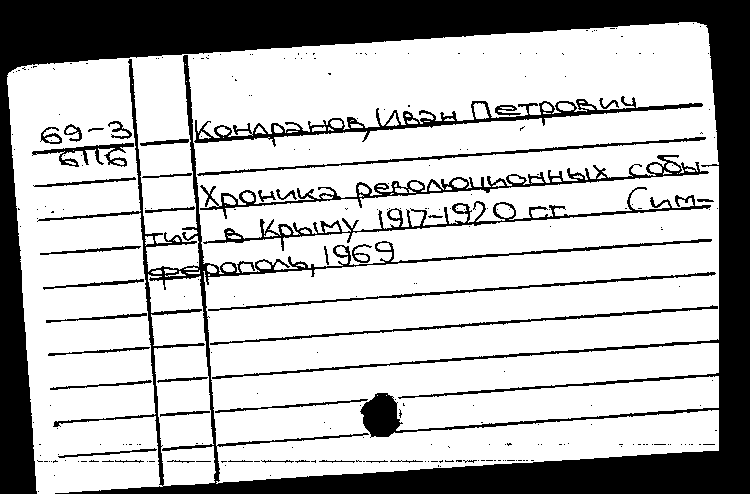 69-3 Кондранов, Иван Петрович
6116
Хроника революционных собы-
тий в Крыму 1917-1920 гг. Сим-
ферополь, 1969